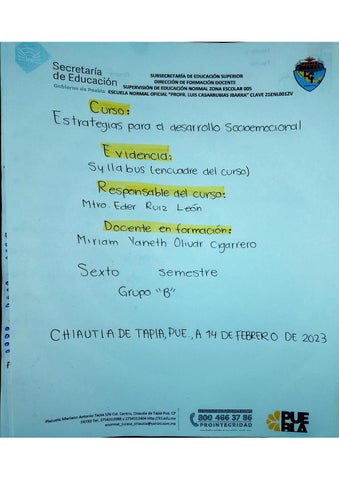 Secretaría
de Educación
Gobierno de Puebla
SUBSECRETARÍA DE EDUCACIÓN SUPERIOR
DIRECCIÓN DE FORMACIÓN DOCENTE
SUPERVISIÓN DE EDUCACIÓN NORMAL ZONA ESCOLAR 005
ESCUELA NORMAL OFICIAL "PROFR. LUIS CASARRUBIAS IBARRA" CLAVE 21ENL0012V
Curso:
Estrategias para el desarrollo Socioemocional
Evidencia:
Syllabus (encuadre del curso)
Responsable del curso:
Mtro. Eder Ruiz León
Docente en formación:
Miriam Yaneth Olivar Cigarrero
Sexto semestre
Grupo "B"
CHIAUTLA DE TAPIA, PUE., A 14 DE FEBRERO DE 2023
Plazuela Mariano Antonio Tapia S/N Col. Centro, Chiautla de Tapia Pue. CP
800 466 37 86
PROINTEGRIDAD
PUE
BLA